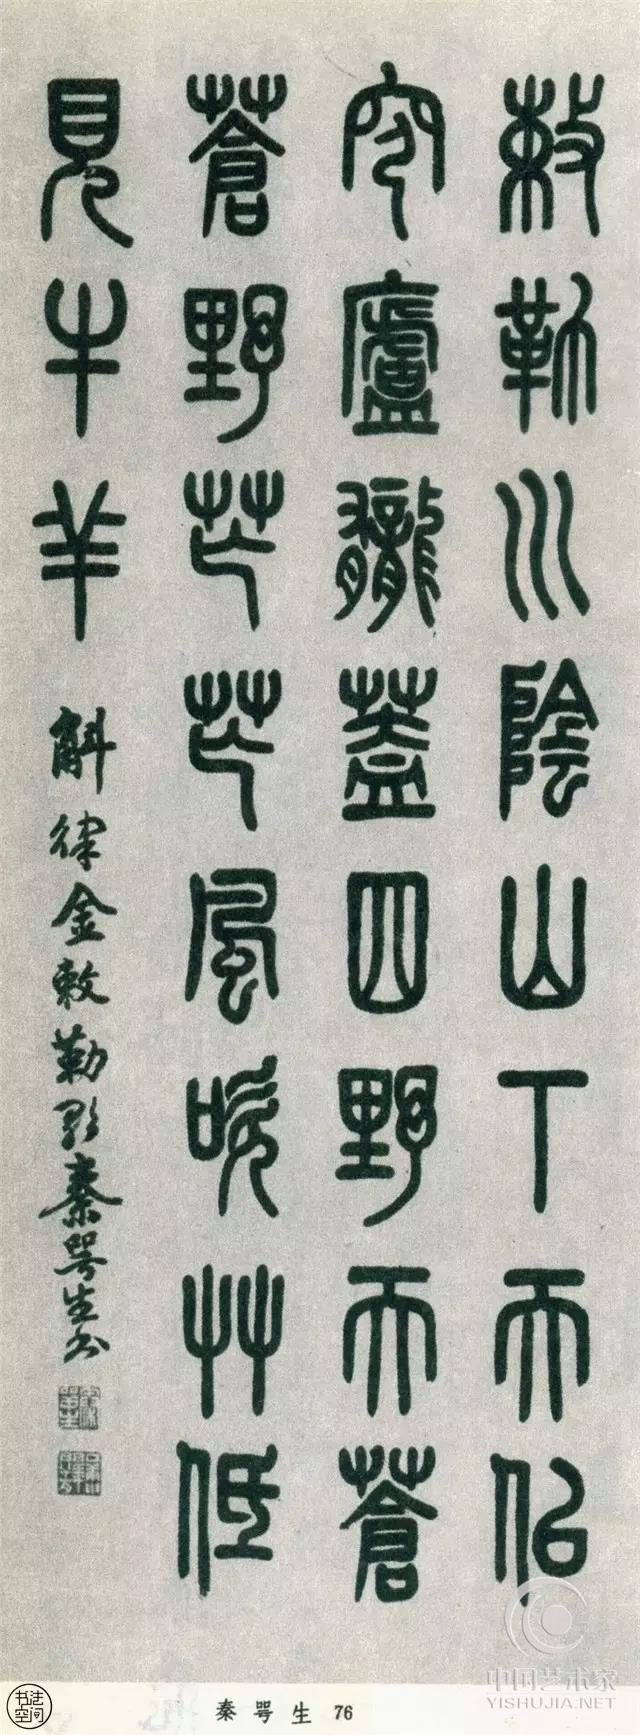 敕勒川陰山下天佀
穹廬龓蓋四野天蒼
蒼野芒芒風吹艸低
見牛羊 斛律金敕勒歌秦咢生書
中国艺术家
YISHUJIA.NET
书法空间
秦咢生 76